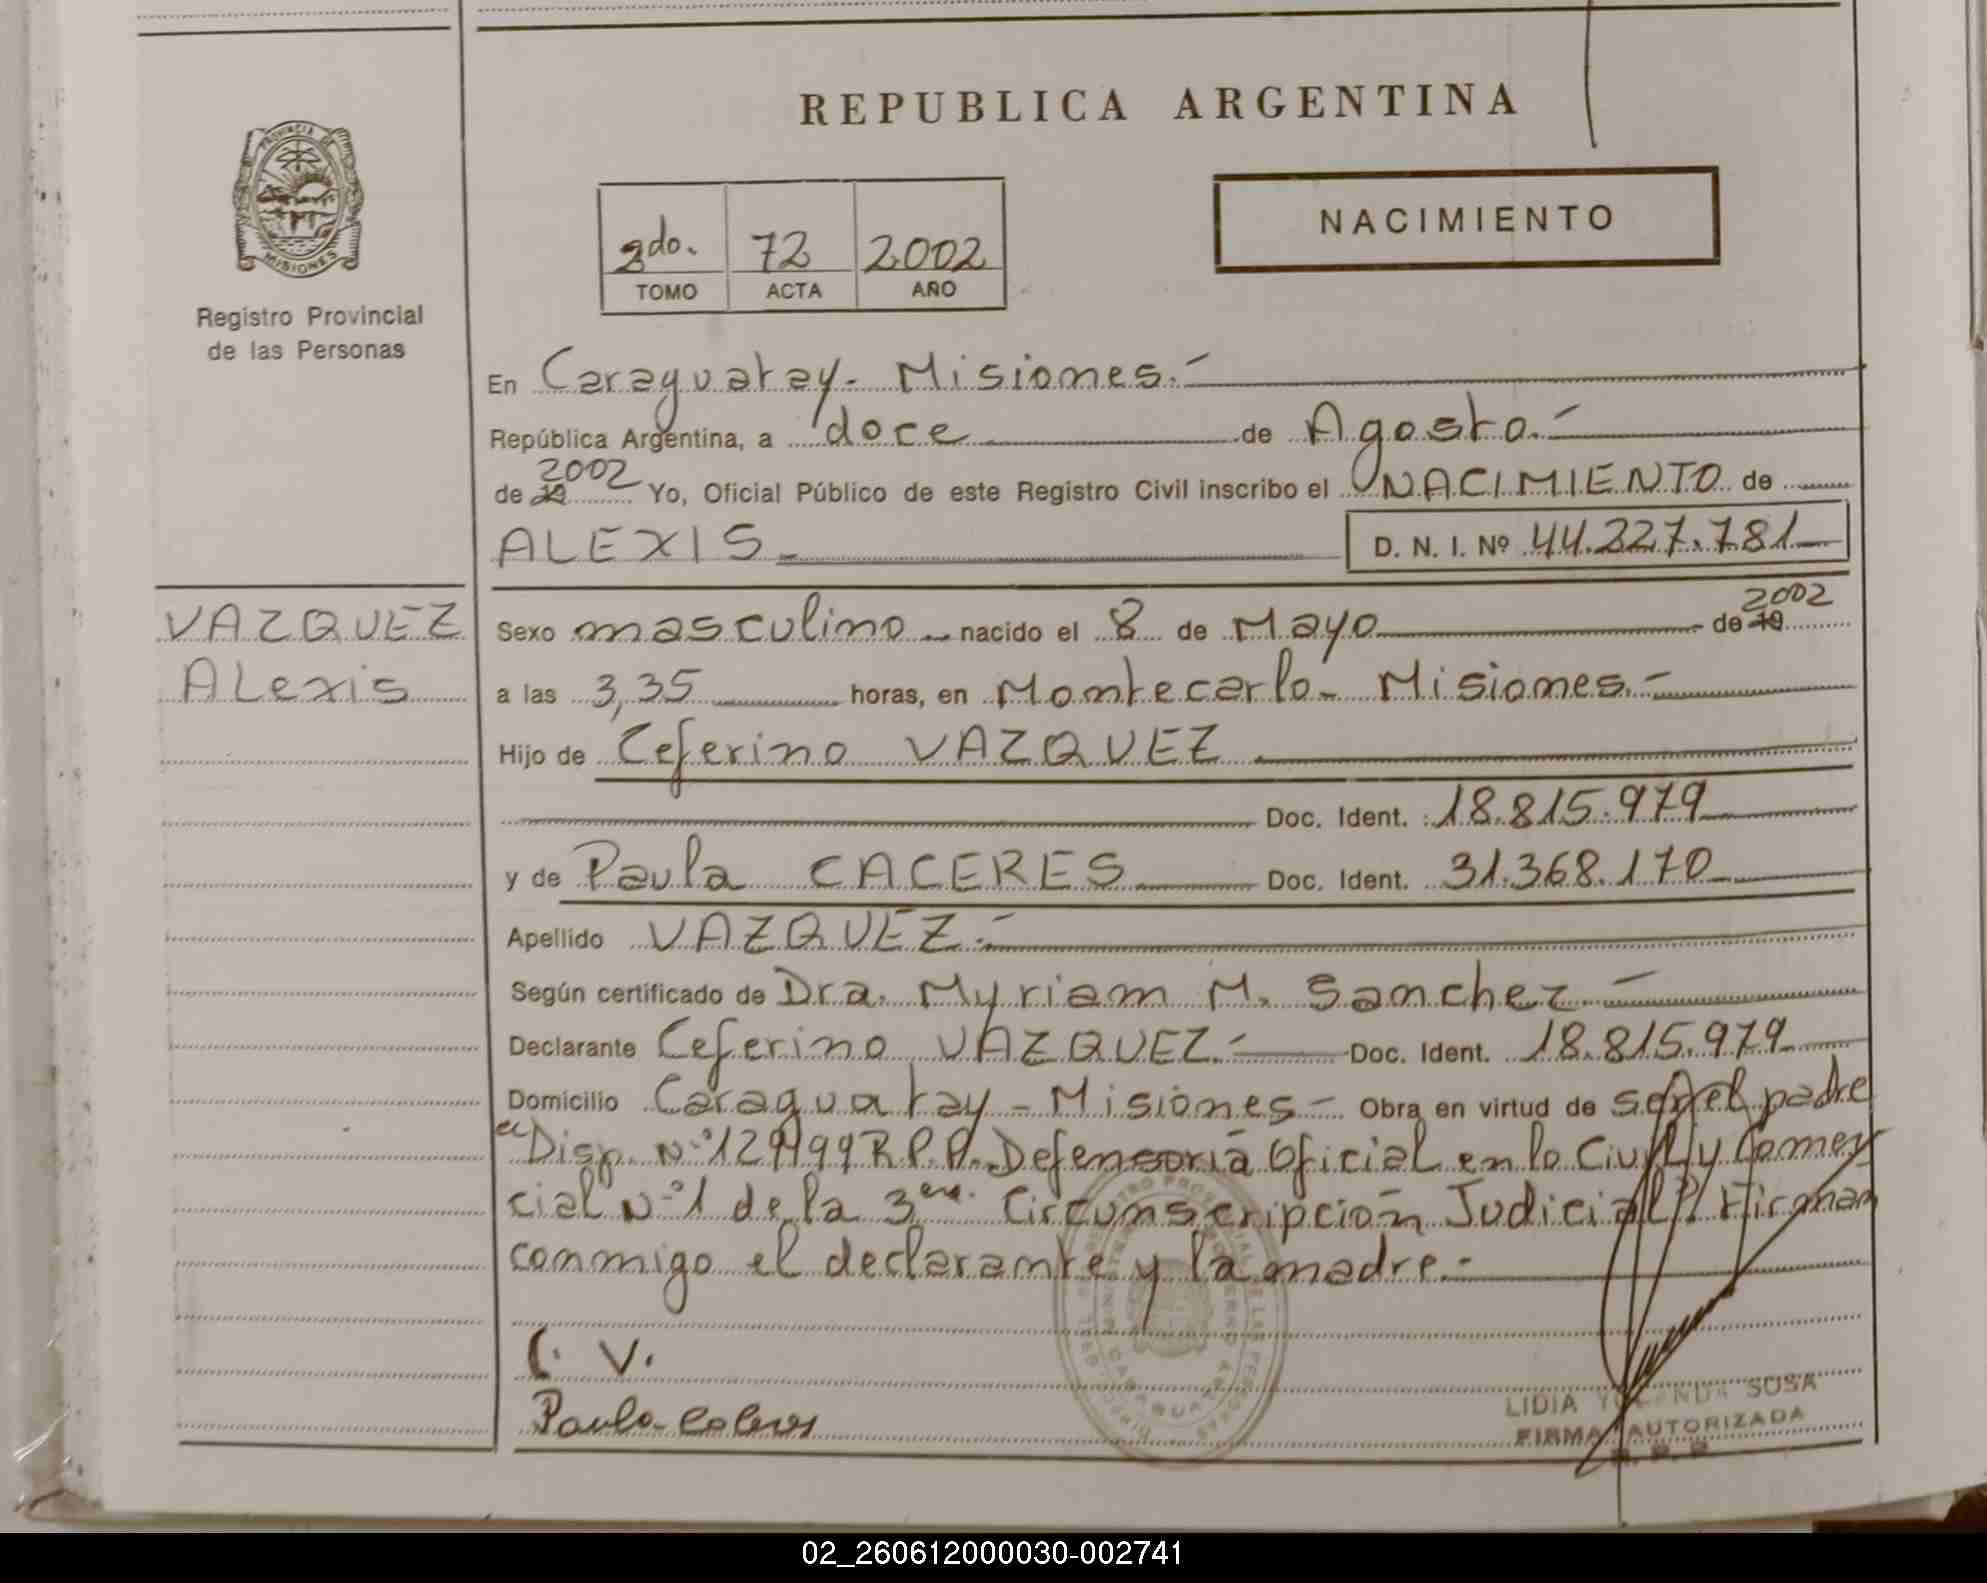 REPUBLICA ARGENTINA
PROVINCIA DE
MISIONES
Registro Provincial
de las Personas
2do. 72 2002
TOMO ACTA AÑO
NACIMIENTO
En Caraguatay - Misiones.-
República Argentina, a doce de Agosto.-
2002
de 19 Yo, Oficial Público de este Registro Civil inscribo el NACIMIENTO de
ALEXIS D. N. I. Nº 44.227.781
VAZQUEZ
Alexis
2002
Sexo masculino nacido el 8 de Mayo de 19
a las 3,35 horas, en Montecarlo - Misiones.-
Hijo de Ceferino VAZQUEZ
Doc. Ident. 18.815.979
y de Paula CACERES Doc. Ident. 31.368.170
Apellido VAZQUEZ.-
Según certificado de Dra. Myriam M. Sanchez.-
Declarante Ceferino VAZQUEZ.- Doc. Ident. 18.815.979
Domicilio Caraguatay - Misiones - Obra en virtud de ser el padre
"Disp. Nº 129/99 R.P.P. Defensoría Oficial en lo Civil y Comer
cial Nº 1 de la 3era. Circunscripción Judicial" Firman
conmigo el declarante y la madre.-
C. V.
Paula
LIDIA SOSA
FIRMA AUTORIZADA
R. P. P.
02_260612000030-002741